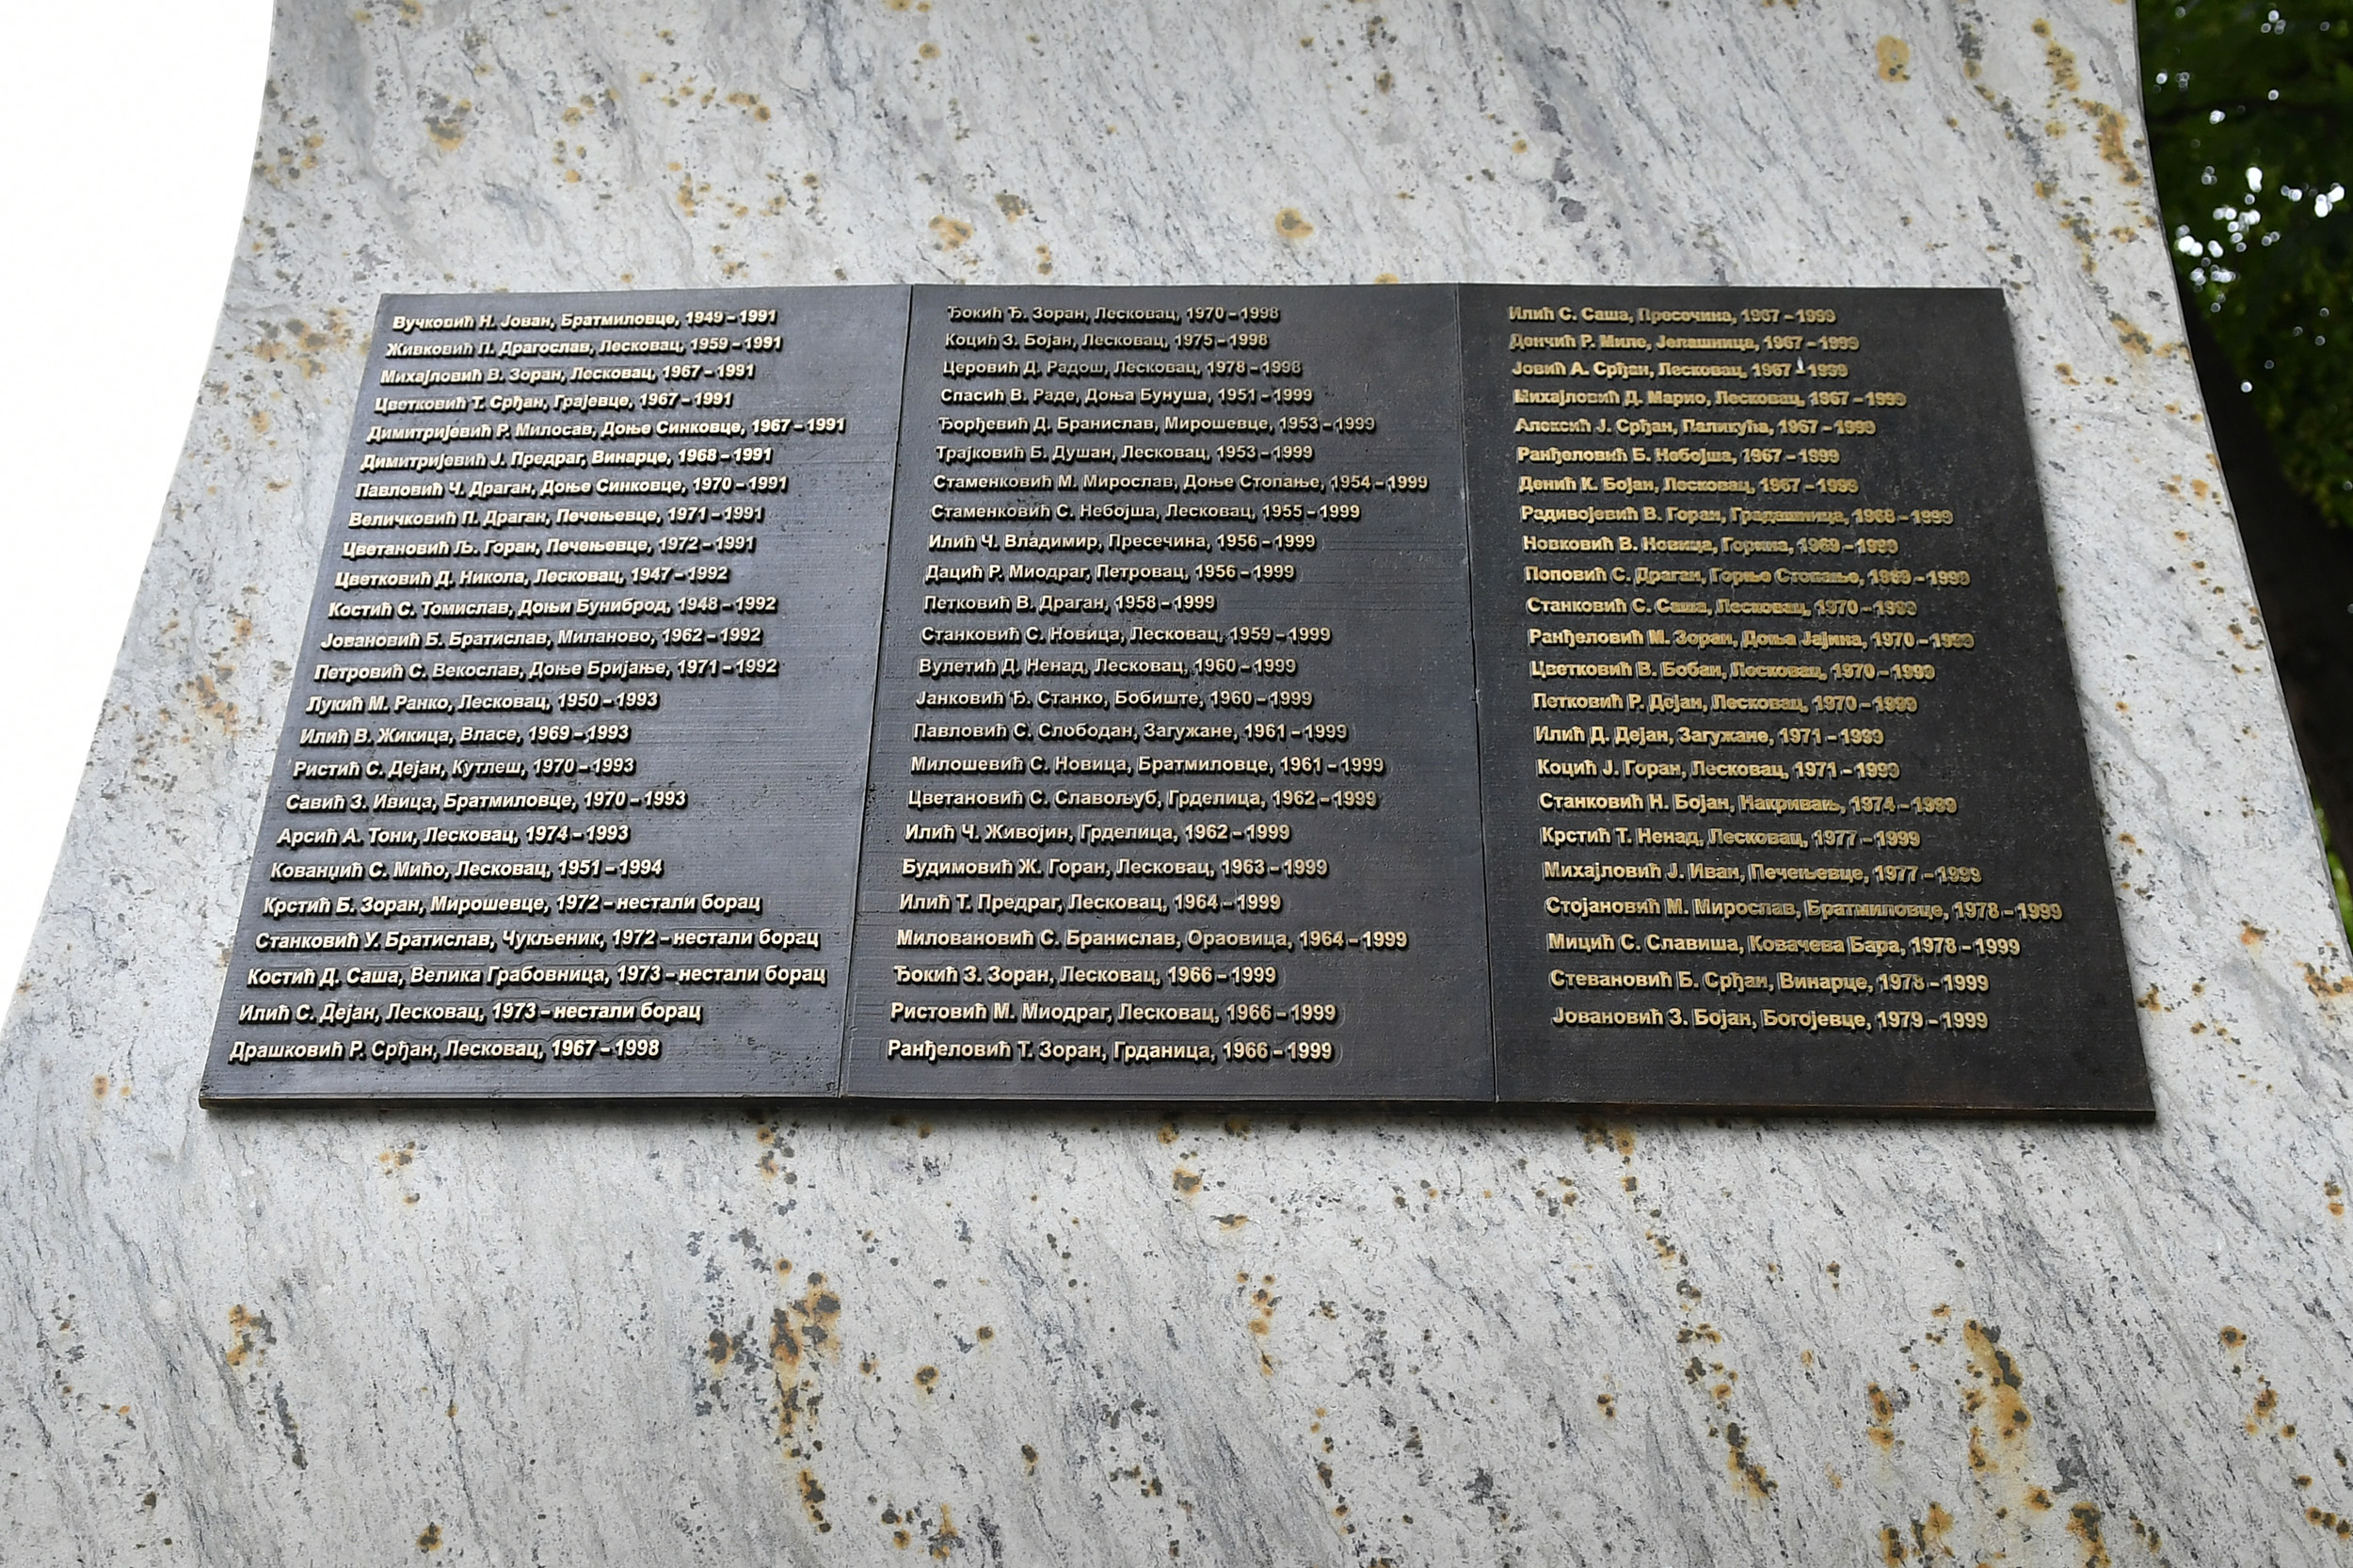 Вучковић Н. Јован, Братмиловце, 1949 – 1991
Живковић П. Драгослав, Лесковац, 1959 – 1991
Михајловић В. Зоран, Лесковац, 1967 – 1991
Цветковић Т. Срђан, Грајевце, 1967 – 1991
Димитријевић Р. Милосав, Доње Синковце, 1967 – 1991
Димитријевић Ј. Предраг, Винарце, 1968 – 1991
Павловић Ч. Драган, Доње Синковце, 1970 – 1991
Величковић П. Драган, Печењевце, 1971 – 1991
Цветановић Љ. Горан, Печењевце, 1972 – 1991
Цветковић Д. Никола, Лесковац, 1947 – 1992
Костић С. Томислав, Доњи Буниброд, 1948 – 1992
Јовановић Б. Братислав, Миланово, 1962 – 1992
Петровић С. Векослав, Доње Бријање, 1971 – 1992
Лукић М. Ранко, Лесковац, 1950 – 1993
Илић В. Жикица, Власе, 1969 – 1993
Ристић С. Дејан, Кутлеш, 1970 – 1993
Савић З. Ивица, Братмиловце, 1970 – 1993
Арсић А. Тони, Лесковац, 1974 – 1993
Кованџић С. Мићо, Лесковац, 1951 – 1994
Крстић Б. Зоран, Мирошевце, 1972 – нестали борац
Станковић У. Братислав, Чукљеник, 1972 – нестали борац
Костић Д. Саша, Велика Грабовница, 1973 – нестали борац
Илић С. Дејан, Лесковац, 1973 – нестали борац
Драшковић Р. Срђан, Лесковац, 1967 – 1998
Ђокић Ђ. Зоран, Лесковац, 1970 – 1998
Коцић З. Бојан, Лесковац, 1975 – 1998
Церовић Д. Радош, Лесковац, 1978 – 1998
Спасић В. Раде, Доња Бунуша, 1951 – 1999
Ђорђевић Д. Бранислав, Мирошевце, 1953 – 1999
Трајковић Б. Душан, Лесковац, 1953 – 1999
Стаменковић М. Мирослав, Доње Стопање, 1954 – 1999
Стаменковић С. Небојша, Лесковац, 1955 – 1999
Илић Ч. Владимир, Пресечина, 1956 – 1999
Дацић Р. Миодраг, Петровац, 1956 – 1999
Петковић В. Драган, 1958 – 1999
Станковић С. Новица, Лесковац, 1959 – 1999
Вулетић Д. Ненад, Лесковац, 1960 – 1999
Јанковић Ђ. Станко, Бобиште, 1960 – 1999
Павловић С. Слободан, Загужане, 1961 – 1999
Милошевић С. Новица, Братмиловце, 1961 – 1999
Цветановић С. Славољуб, Грделица, 1962 – 1999
Илић Ч. Живојин, Грделица, 1962 – 1999
Будимовић Ж. Горан, Лесковац, 1963 – 1999
Илић Т. Предраг, Лесковац, 1964 – 1999
Миловановић С. Бранислав, Ораовица, 1964 – 1999
Ђокић З. Зоран, Лесковац, 1966 – 1999
Ристовић М. Миодраг, Лесковац, 1966 – 1999
Ранђеловић Т. Зоран, Грданица, 1966 – 1999
Илић С. Саша, Пресечина, 1967 – 1999
Дончић Р. Миле, Јелашница, 1967 – 1999
Јовић А. Срђан, Лесковац, 1967 – 1999
Михајловић Д. Марио, Лесковац, 1967 – 1999
Алексић Ј. Срђан, Паликућа, 1967 – 1999
Ранђеловић Б. Небојша, 1967 – 1999
Денић К. Бојан, Лесковац, 1967 – 1999
Радивојевић В. Горан, Градашница, 1968 – 1999
Новковић В. Новица, Горина, 1969 – 1999
Поповић С. Драган, Горње Стопање, 1969 – 1999
Станковић С. Саша, Лесковац, 1970 – 1999
Ранђеловић М. Зоран, Доња Јајина, 1970 – 1999
Цветковић В. Бобан, Лесковац, 1970 – 1999
Петковић Р. Дејан, Лесковац, 1970 – 1999
Илић Д. Дејан, Загужане, 1971 – 1999
Коцић Ј. Горан, Лесковац, 1971 – 1999
Станковић Н. Бојан, Накривањ, 1974 – 1999
Крстић Т. Ненад, Лесковац, 1977 – 1999
Михајловић Ј. Иван, Печењевце, 1977 – 1999
Стојановић М. Мирослав, Братмиловце, 1978 – 1999
Мицић С. Славиша, Ковачева Бара, 1978 – 1999
Стевановић Б. Срђан, Винарце, 1978 – 1999
Јовановић З. Бојан, Богојевце, 1979 – 1999